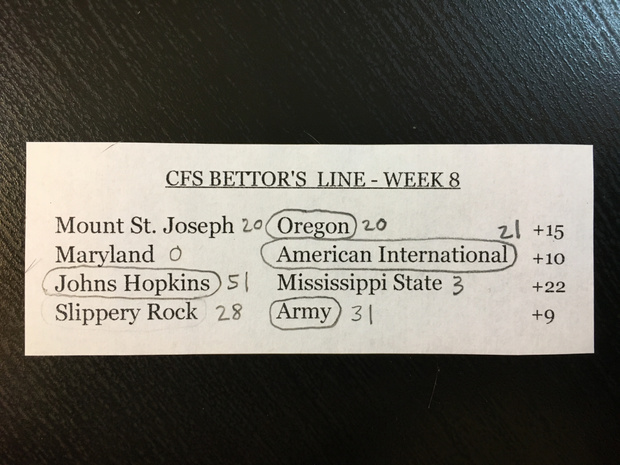 CFS BETTOR'S LINE - WEEK 8
Mount St. Joseph 20 Oregon 20 +15
Maryland 0 American International 21 +10
Johns Hopkins 51 Mississippi State 3 +22
Slippery Rock 28 Army 31 +9